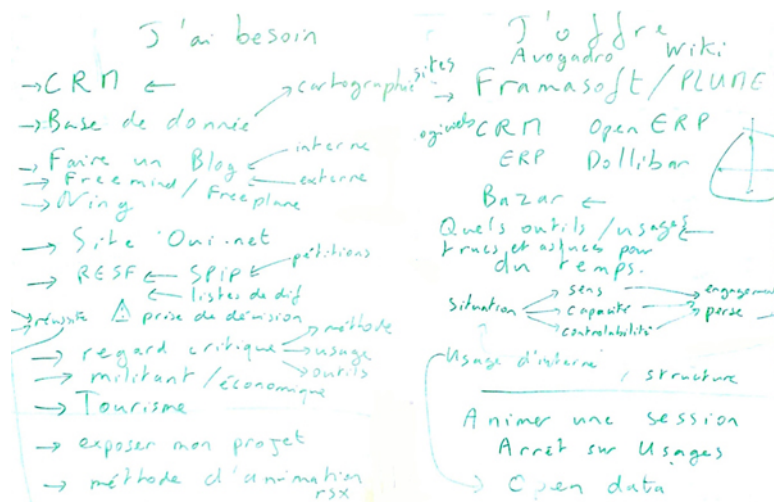 J'ai besoin
→ CRM ←
→ Base de donnée → cartographie
→ Faire un Blog ← interne
→ Freemind / Freeplane ← externe
→ Ning
→ Site Oui.net
→ RESF ← SPIP ← pétitions
← listes de dif
→ réussite ⚠ prise de décision
→ regard critique → méthode
→ usage
→ outils
→ militant / économique
→ Tourisme
→ exposer mon projet
→ méthode d'animation
rsx
J'offre
Avogadro Wiki
sites → Framasoft / PLUME
ogiciels CRM Open ERP
ERP Dollibar
Bazar ←
Quels outils / usages ←
trucs et astuces pour
du temps.
situation → sens → engagement
→ capacité → perse
→ controlabilité
Usage d'interne
/ structure
Animer une session
Arrêt sur Usages
→ Open data